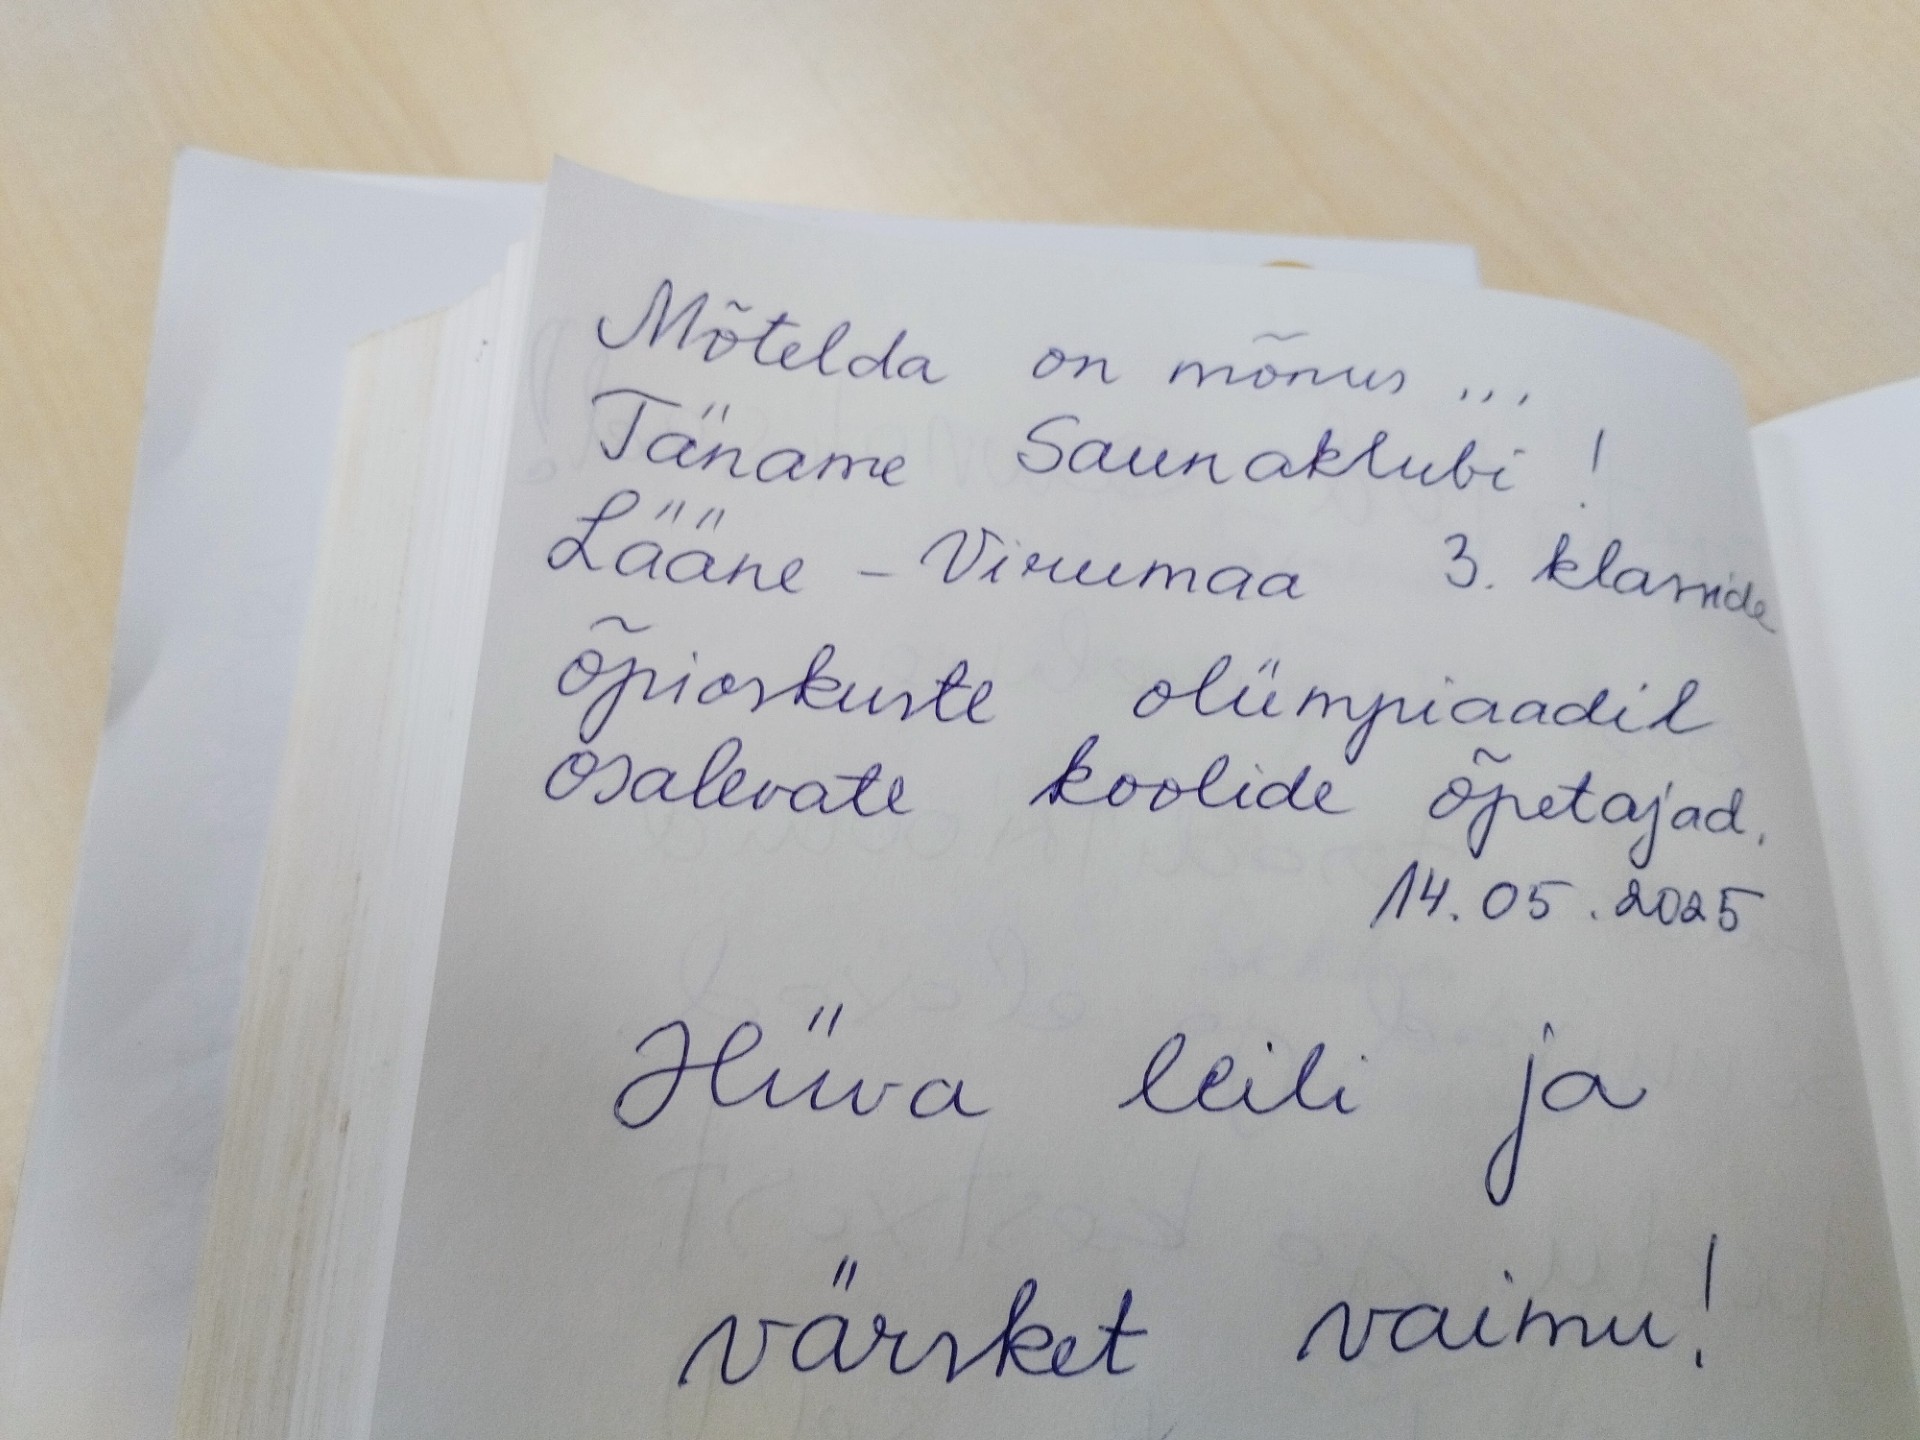 Mõtelda on mõnus ...
Täname Saunaklubi !
Lääne - Virumaa 3. klasside
õpioskuste olümpiaadil
osalevate koolide õpetajad.
14.05.2025
Hüva leili ja
värsket vaimu!